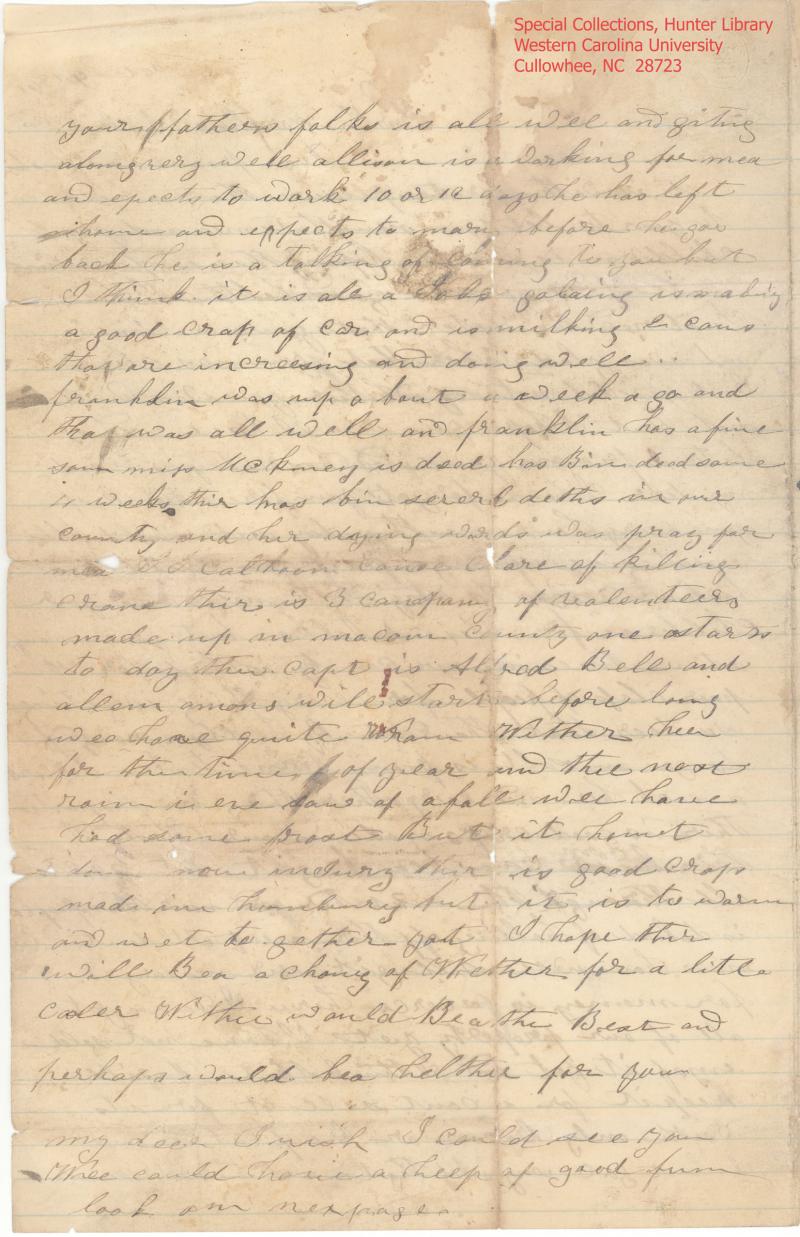 Special Collections, Hunter Library
Western Carolina University
Cullowhee, NC 28723
your fathers folks is all well and giting
along very well allison is a working for mea
and epects to work 10 or 12 days he has left
home and expects to mary before he gos
back he is a talking of coming to you but
I think it is all a is making
a good crap of corn and is milking 2 cows
thay are increesing and doing well
franklin was up a bout a week a go and
thay was all well and franklin has a fine
sone miss McKiney is dead has Bin dead some
weeks thir has bin severl deths in our
county and her dying words was pray for
mea Calhoun Clare of killing
Crane thir is 3 company of valenteers
made up in macon County one starts
to day ther Capt is Alfred Bell and
allem amons will start before long
wee have quite Warm Wether heer
for the time of year and thee most
rain i eve saw of a fall wee have
had some frost But it hamet
don now indury thir is good Crops
made in but it is to warm
and wet to gether yet I hope thir
will Bea a chang of Wether for a litle
coler Wether would Bea the Best and
perhaps would bea helther for you
my dear I wish I could see you
Wee could have a heep of good funn
look on nex page